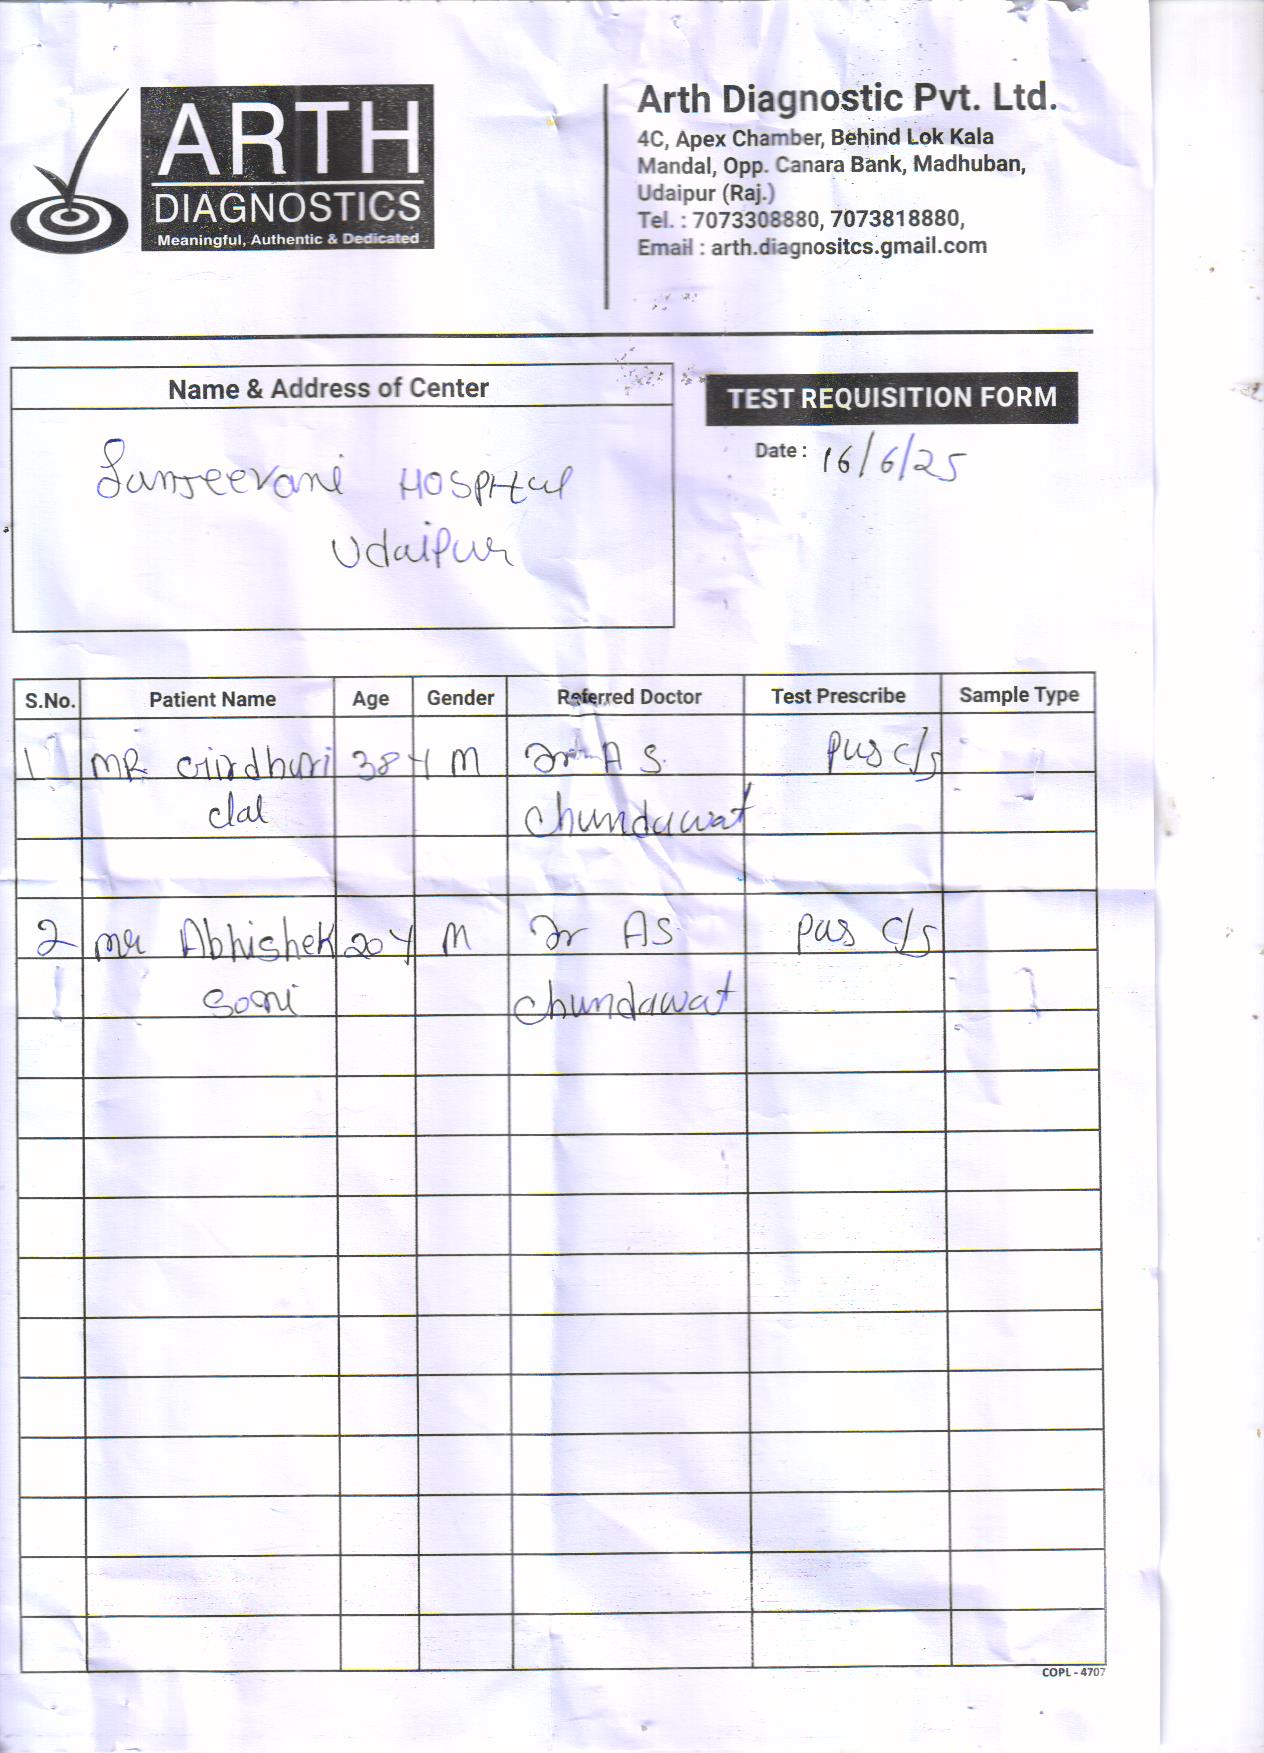 ARTH
DIAGNOSTICS
Meaningful, Authentic & Dedicated
Arth Diagnostic Pvt. Ltd.
4C, Apex Chamber, Behind Lok Kala
Mandal, Opp. Canara Bank, Madhuban,
Udaipur (Raj.)
Tel. : 7073308880, 7073818880,
Email : arth.diagnositcs.gmail.com
Name & Address of Center
Sanjeevani Hospital
Udaipur
TEST REQUISITION FORM
Date : 16/6/25
S.No. Patient Name Age Gender Referred Doctor Test Prescribe Sample Type
1 MR Girdhari 38 Y M Dr A S pus c/s
lal Chundawat
2 Mr Abhishek 20 Y M Dr AS pus c/s
Soni Chundawat
COPL - 4707